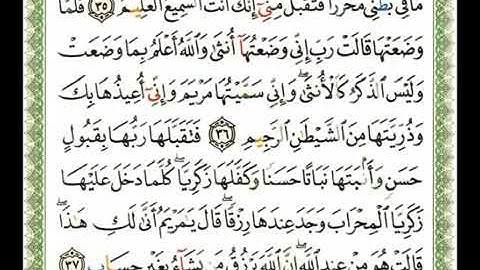 مَا فِي بَطْنِي مُحَرَّرًا فَتَقَبَّلْ مِنِّىٓ إِنَّكَ أَنتَ ٱلسَّمِيعُ ٱلْعَلِيمُ ٣٥ فَلَمَّا
وَضَعَتْهَا قَالَتْ رَبِّ إِنِّى وَضَعْتُهَآ أُنثَىٰ وَٱللَّهُ أَعْلَمُ بِمَا وَضَعَتْ
وَلَيْسَ ٱلذَّكَرُ كَٱلْأُنثَىٰ ۖ وَإِنِّى سَمَّيْتُهَا مَرْيَمَ وَإِنِّىٓ أُعِيذُهَا بِكَ
وَذُرِّيَّتَهَا مِنَ ٱلشَّيْطَٰنِ ٱلرَّجِيمِ ٣٦ فَتَقَبَّلَهَا رَبُّهَا بِقَبُولٍ
حَسَنٍ وَأَنۢبَتَهَا نَبَاتًا حَسَنًا وَكَفَّلَهَا زَكَرِيَّا ۖ كُلَّمَا دَخَلَ عَلَيْهَا
زَكَرِيَّا ٱلْمِحْرَابَ وَجَدَ عِندَهَا رِزْقًا ۖ قَالَ يَٰمَرْيَمُ أَنَّىٰ لَكِ هَٰذَا ۖ
قَالَتْ هُوَ مِنْ عِندِ ٱللَّهِ ۖ إِنَّ ٱللَّهَ يَرْزُقُ مَن يَشَآءُ بِغَيْرِ حِسَابٍ ٣٧